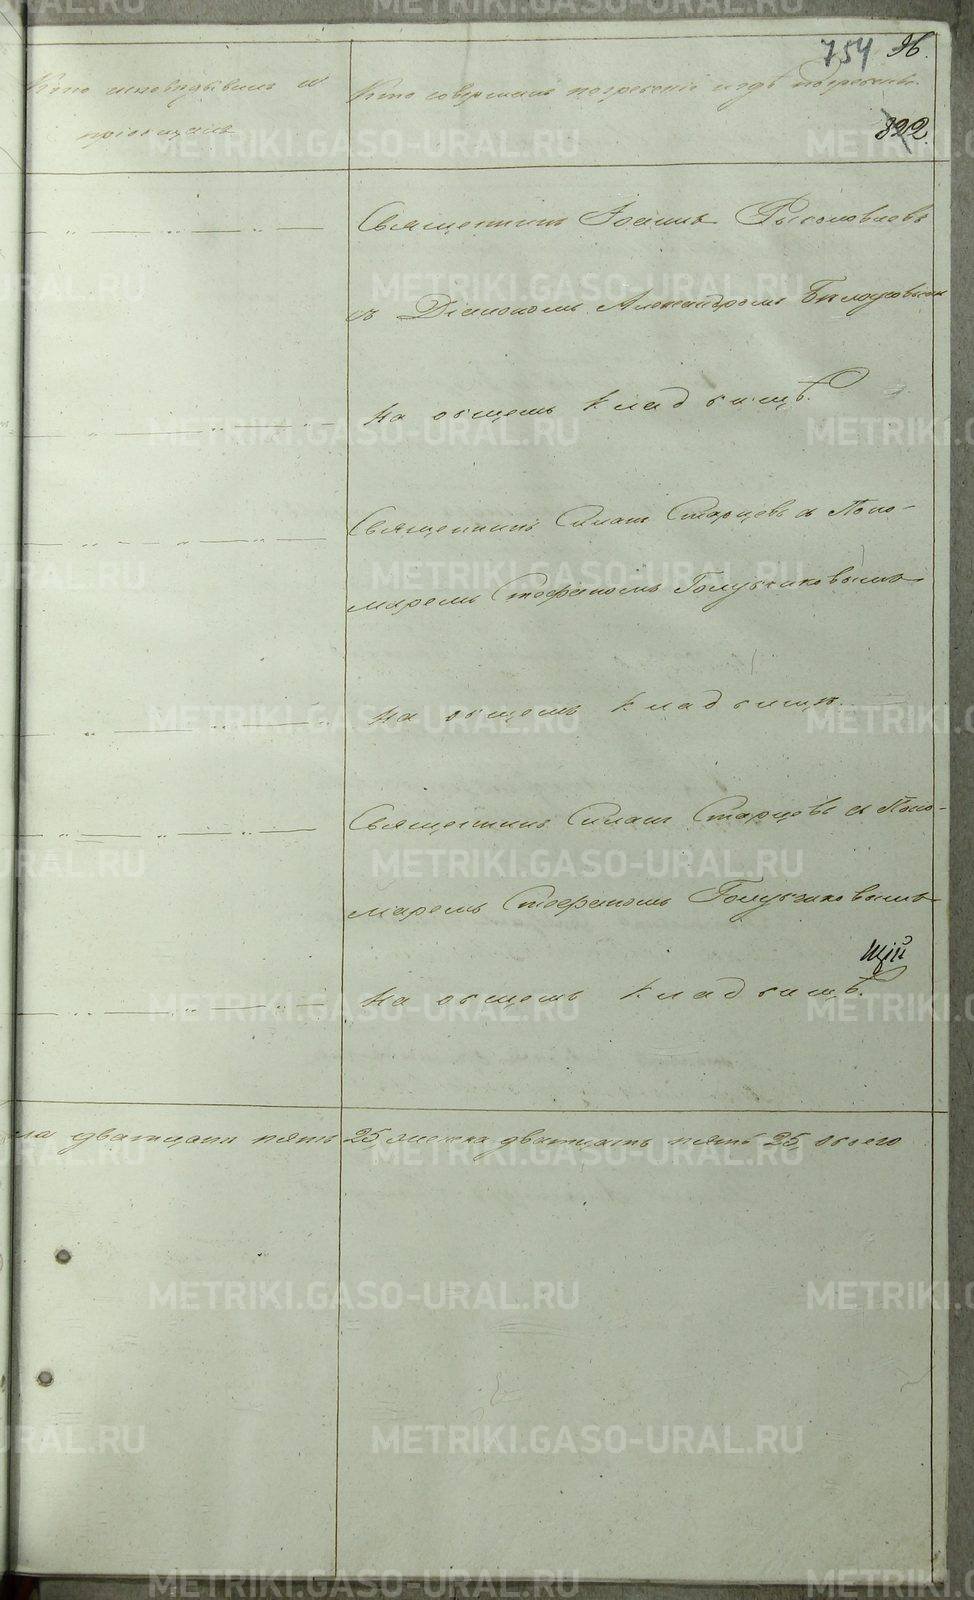 754 96.
322
Кто исповѣдывалъ и
пріобщалъ
Кто совершалъ погребеніе и гдѣ погребены.
Священникъ Іоаннъ
съ Діакономъ Александромъ
на общемъ кладбищѣ.
Священникъ Стефанъ Старцевъ съ Поно-
маремъ Стефаномъ Голубчиковымъ
на общемъ кладбищѣ.
Священникъ Старцевъ съ Поно-
маремъ Стефаномъ Голубчиковымъ
щій
на общемъ кладбищѣ.
дватцать пять 25 женска дватцать пять 25 обоего
METRIKI.GASO-URAL.RU